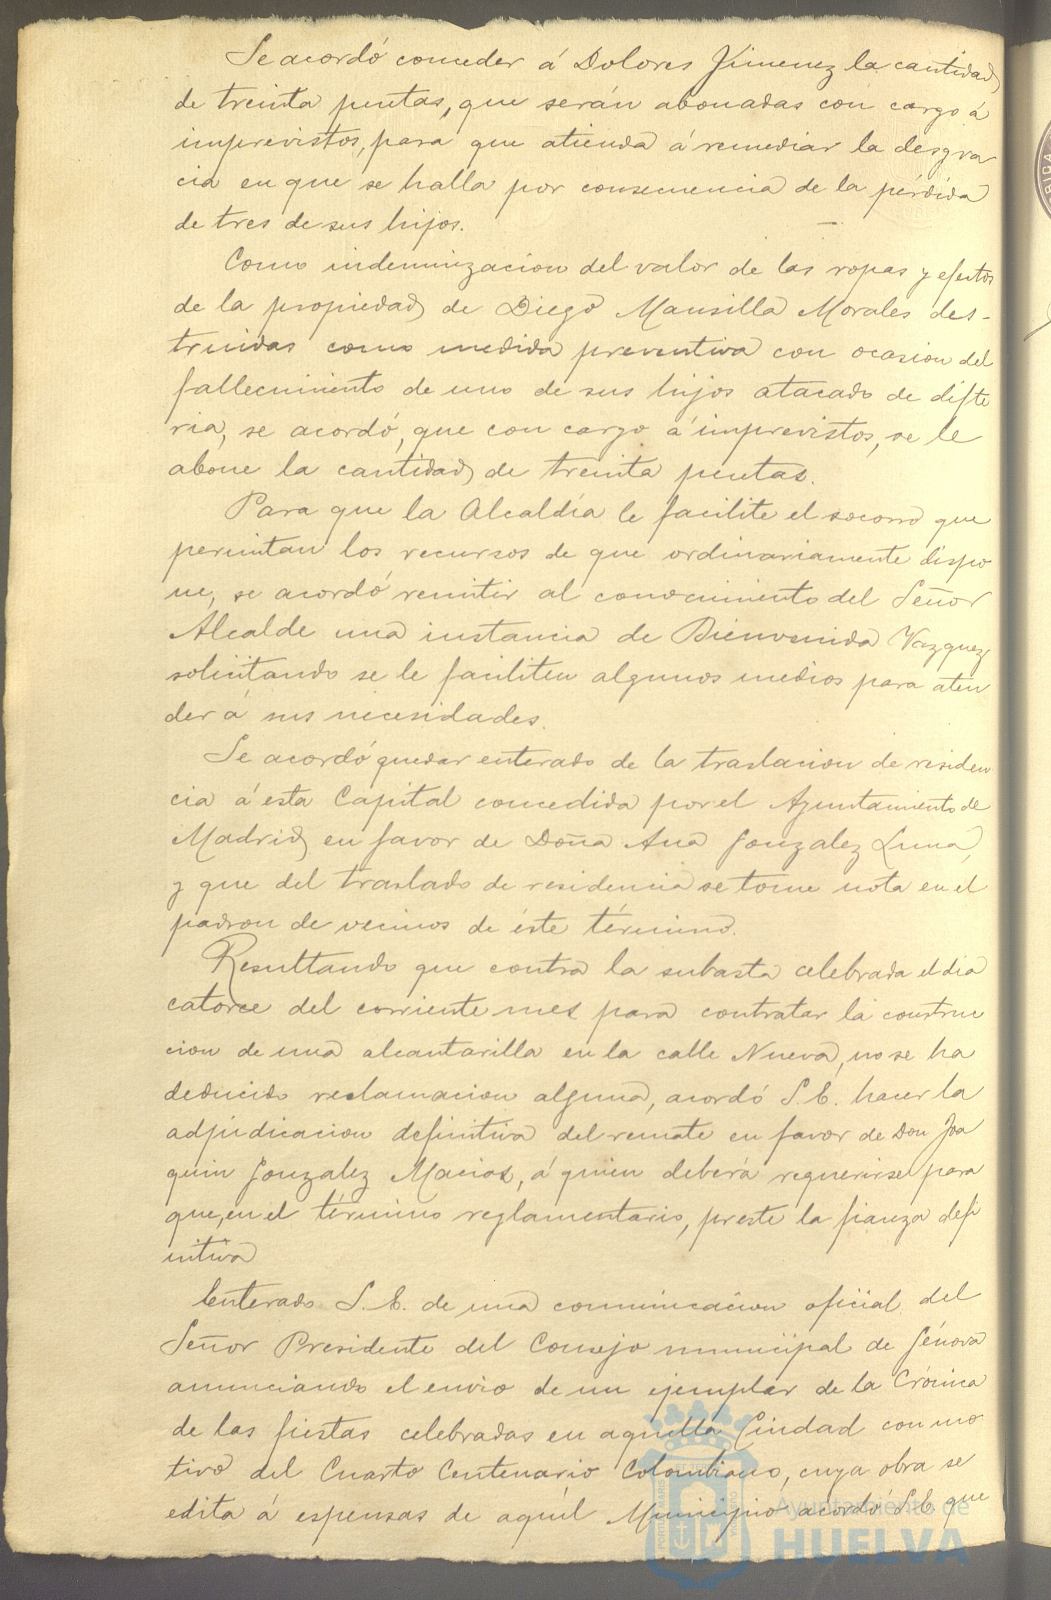 Se acordó conceder á Dolores Jimenez la cantidad
de treinta pesetas, que serán abonadas con cargo á
imprevistos, para que atienda á remediar la desgra
cia en que se halla por consecuencia de la pérdida
de tres de sus hijos.
Como indemnizacion del valor de las ropas y efectos
de la propiedad de Diego Mansilla Morales des-
truidas como medida preventiva con ocasion del
fallecimiento de uno de sus hijos atacado de difte
ria, se acordó, que con cargo á imprevistos, se le
abone la cantidad de treinta pesetas.
Para que la Alcaldía le facilite el socorro que
permitan los recursos de que ordinariamente dispo
ne, se acordó remitir al conocimiento del Señor
Alcalde una instancia de Bienvenida Vazquez
solicitando se le faciliten algunos medios para aten
der á sus necesidades.
Se acordó quedar enterado de la traslacion de residen
cia á esta Capital concedida por el Ayuntamiento de
Madrid en favor de Doña Ana Gonzalez Luna,
y que del traslado de residencia se tome nota en el
padron de vecinos de éste término.
Resultando que contra la subasta celebrada el dia
catorce del corriente mes para contratar la construc
cion de una alcantarilla en la calle Nueva, no se ha
deducido reclamacion alguna, acordó S.E. hacer la
adjudicacion definitiva del remate en favor de Don Joa
quin Gonzalez Macias, á quien deberá requerirse para
que, en el término reglamentario, preste la fianza defi
nitiva
Enterado S.E. de una comunicacion oficial del
Señor Presidente del Consejo municipal de Génova
anunciando el envio de un ejemplar de la Crónica
de las fiestas celebradas en aquella Ciudad con mo
tivo del Cuarto Centenario Colombiano, cuya obra se
edita á espensas de aquél Municipio acordó S.E. que
Ayuntamiento de
HUELVA